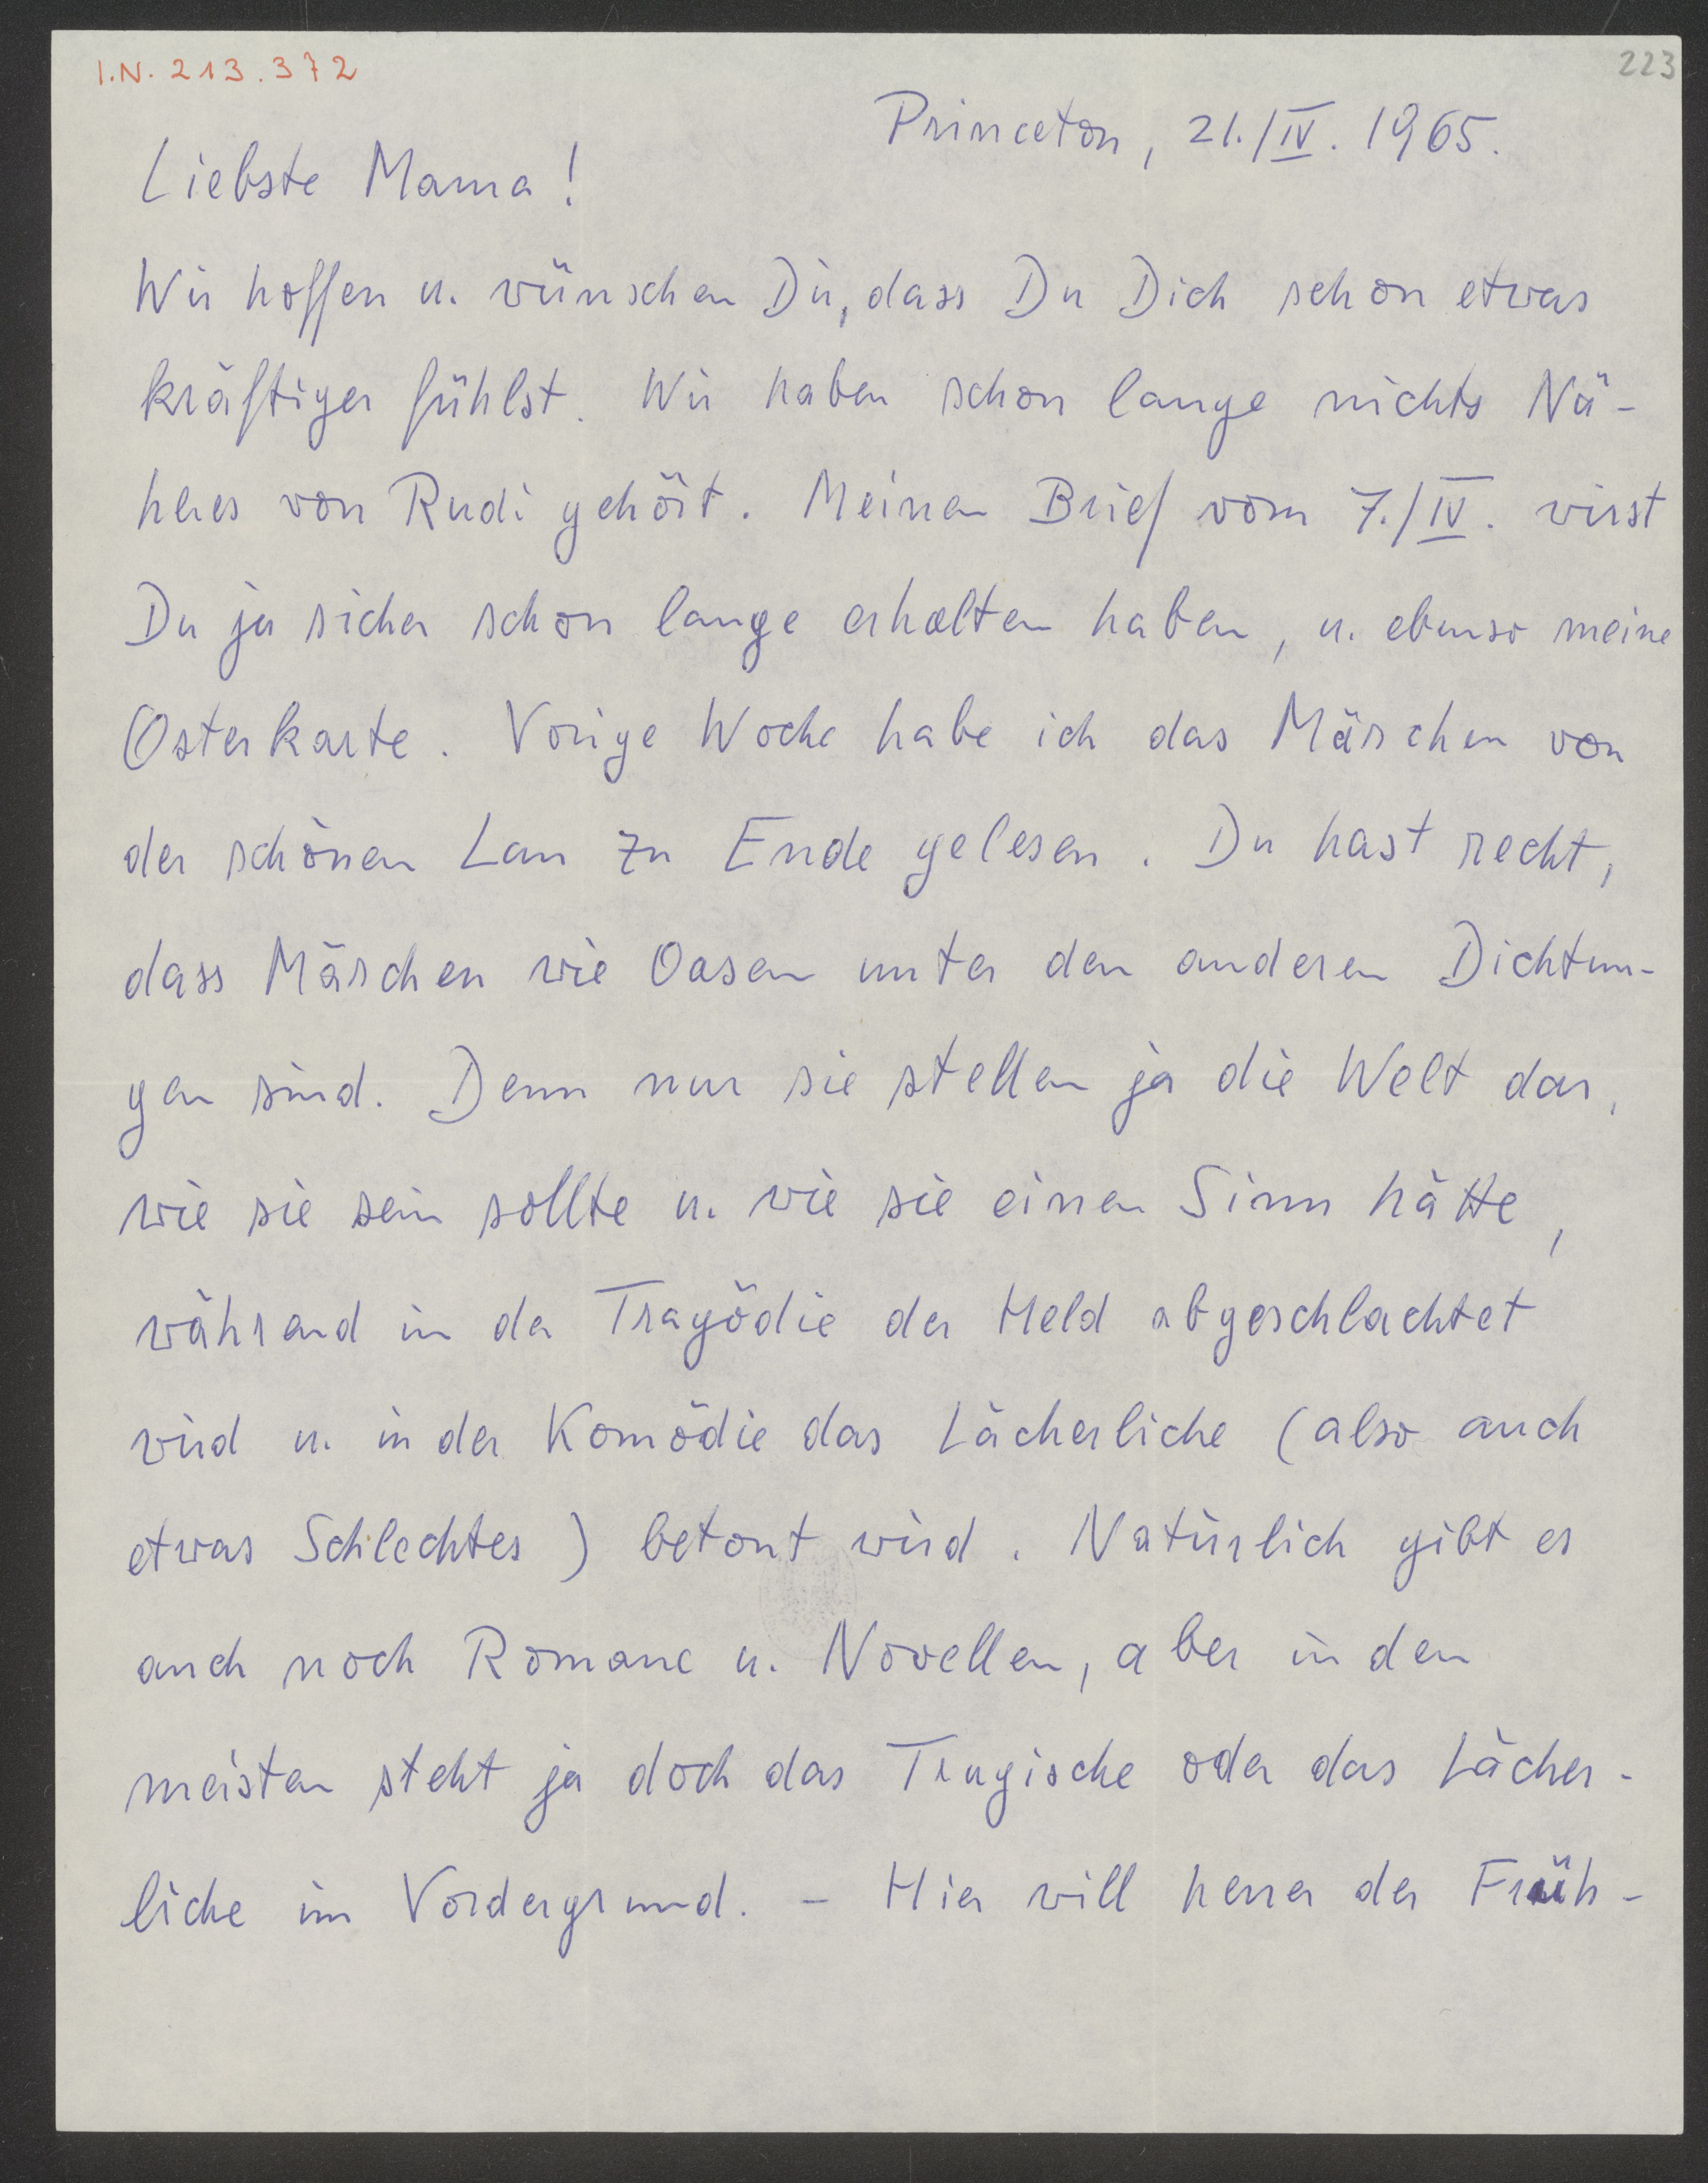 I.N. 213.372
223
Princeton, 21./IV. 1965.
Liebste Mama!
Wir hoffen u. wünschen Dir, dass Du Dich schon etwas
kräftiger fühlst. Wir haben schon lange nichts Nä-
heres von Rudi gehört. Meinen Brief vom 7./IV. wirst
Du ja sicher schon lange erhalten haben, u. ebenso meine
Osterkarte. Vorige Woche habe ich das Märchen von
der schönen Lau zu Ende gelesen. Du hast recht,
dass Märchen wie Oasen unter den anderen Dichtun-
gen sind. Denn nur sie stellen ja die Welt dar,
wie sie sein sollte u. wie sie einen Sinn hätte,
während in der Tragödie der Held abgeschlachtet
wird u. in der Komödie das Lächerliche (also auch
etwas Schlechtes) betont wird. Natürlich gibt es
auch noch Romane u. Novellen, aber in den
meisten steht ja doch das Tragische oder das Lächer-
liche im Vordergrund. – Hier will heuer der Früh-